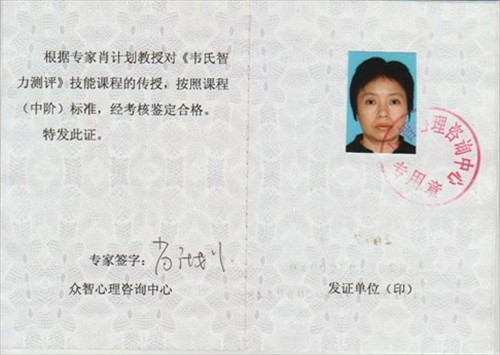 根据专家肖计划教授对《韦氏智
力测评》技能课程的传授，按照课程
（中阶）标准，经考核鉴定合格。
特发此证。
专家签字：肖计划
众智心理咨询中心
心理咨询中心
专用章
发证单位（印）